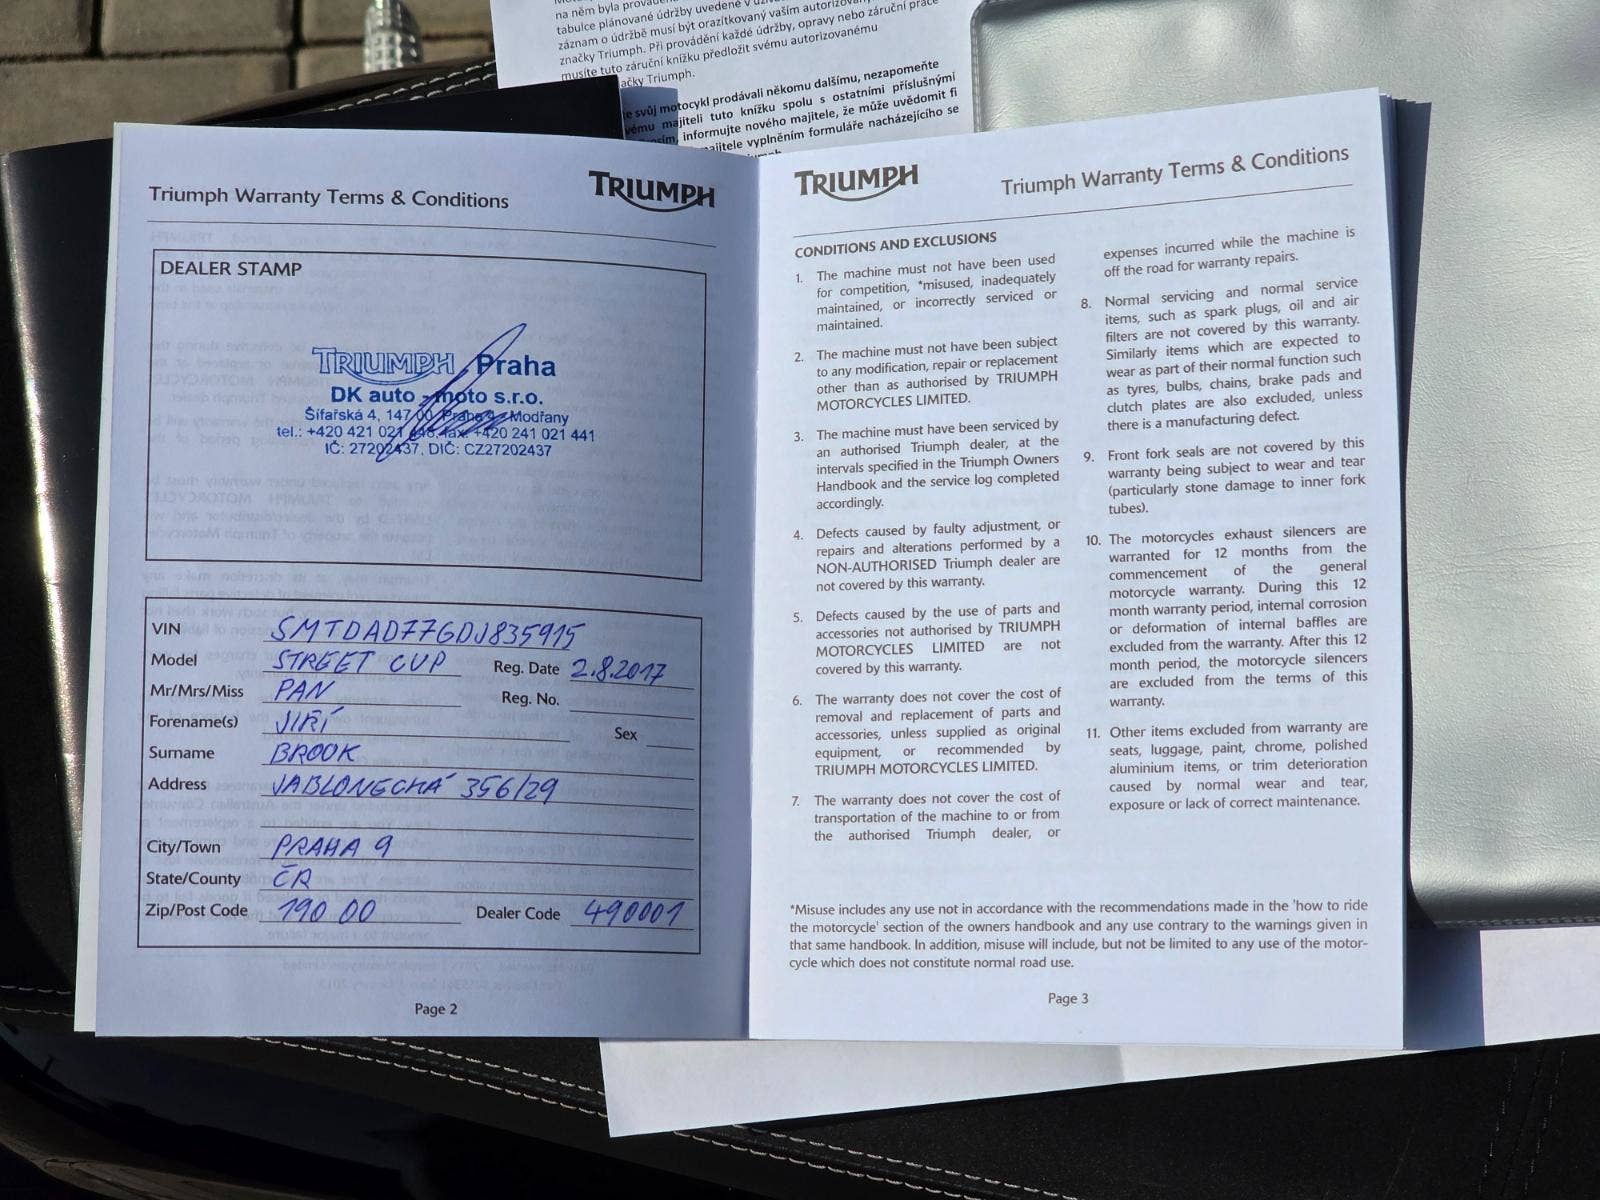 na něm byla provádě
tabulce plánované údržby uvedené v
záznam o údržbě musí být orazítkovaný vaším
značky Triumph. Při provádění každé údržby, opravy nebo záruční práce
musíte tuto záruční knížku předložit svému autorizovanému
ačky Triumph.
e svůj motocykl prodávali někomu dalšímu, nezapomeňte
vému majiteli tuto knížku spolu s ostatními příslušnými
informujte nového majitele, že může uvědomit fi
majitele vyplněním formuláře nacházejícího se
Triumph Warranty Terms & Conditions
TRIUMPH
DEALER STAMP
TRIUMPH Praha
DK auto - moto s.r.o.
Šífařská 4, 147 00, Praha 4 - Modřany
tel.: +420 421 021 448, fax: +420 241 021 441
IČ: 27202437, DIČ: CZ27202437
VIN SMTDAD77GDJ835915
Model STREET CUP Reg. Date 2.8.2017
Mr/Mrs/Miss PAN Reg. No.
Forename(s) JIŘÍ Sex
Surname BROOK
Address JABLONECKÁ 356/29
City/Town PRAHA 9
State/County ČR
Zip/Post Code 190 00 Dealer Code 490001
Page 2
TRIUMPH
Triumph Warranty Terms & Conditions
CONDITIONS AND EXCLUSIONS
1. The machine must not have been used
for competition, *misused, inadequately
maintained, or incorrectly serviced or
maintained.
2. The machine must not have been subject
to any modification, repair or replacement
other than as authorised by TRIUMPH
MOTORCYCLES LIMITED.
3. The machine must have been serviced by
an authorised Triumph dealer, at the
intervals specified in the Triumph Owners
Handbook and the service log completed
accordingly.
4. Defects caused by faulty adjustment, or
repairs and alterations performed by a
NON-AUTHORISED Triumph dealer are
not covered by this warranty.
5. Defects caused by the use of parts and
accessories not authorised by TRIUMPH
MOTORCYCLES LIMITED are not
covered by this warranty.
6. The warranty does not cover the cost of
removal and replacement of parts and
accessories, unless supplied as original
equipment, or recommended by
TRIUMPH MOTORCYCLES LIMITED.
7. The warranty does not cover the cost of
transportation of the machine to or from
the authorised Triumph dealer, or
expenses incurred while the machine is
off the road for warranty repairs.
8. Normal servicing and normal service
items, such as spark plugs, oil and air
filters are not covered by this warranty.
Similarly items which are expected to
wear as part of their normal function such
as tyres, bulbs, chains, brake pads and
clutch plates are also excluded, unless
there is a manufacturing defect.
9. Front fork seals are not covered by this
warranty being subject to wear and tear
(particularly stone damage to inner fork
tubes).
10. The motorcycles exhaust silencers are
warranted for 12 months from the
commencement of the general
motorcycle warranty. During this 12
month warranty period, internal corrosion
or deformation of internal baffles are
excluded from the warranty. After this 12
month period, the motorcycle silencers
are excluded from the terms of this
warranty.
11. Other items excluded from warranty are
seats, luggage, paint, chrome, polished
aluminium items, or trim deterioration
caused by normal wear and tear,
exposure or lack of correct maintenance.
*Misuse includes any use not in accordance with the recommendations made in the 'how to ride
the motorcycle' section of the owners handbook and any use contrary to the warnings given in
that same handbook. In addition, misuse will include, but not be limited to any use of the motor-
cycle which does not constitute normal road use.
Page 3